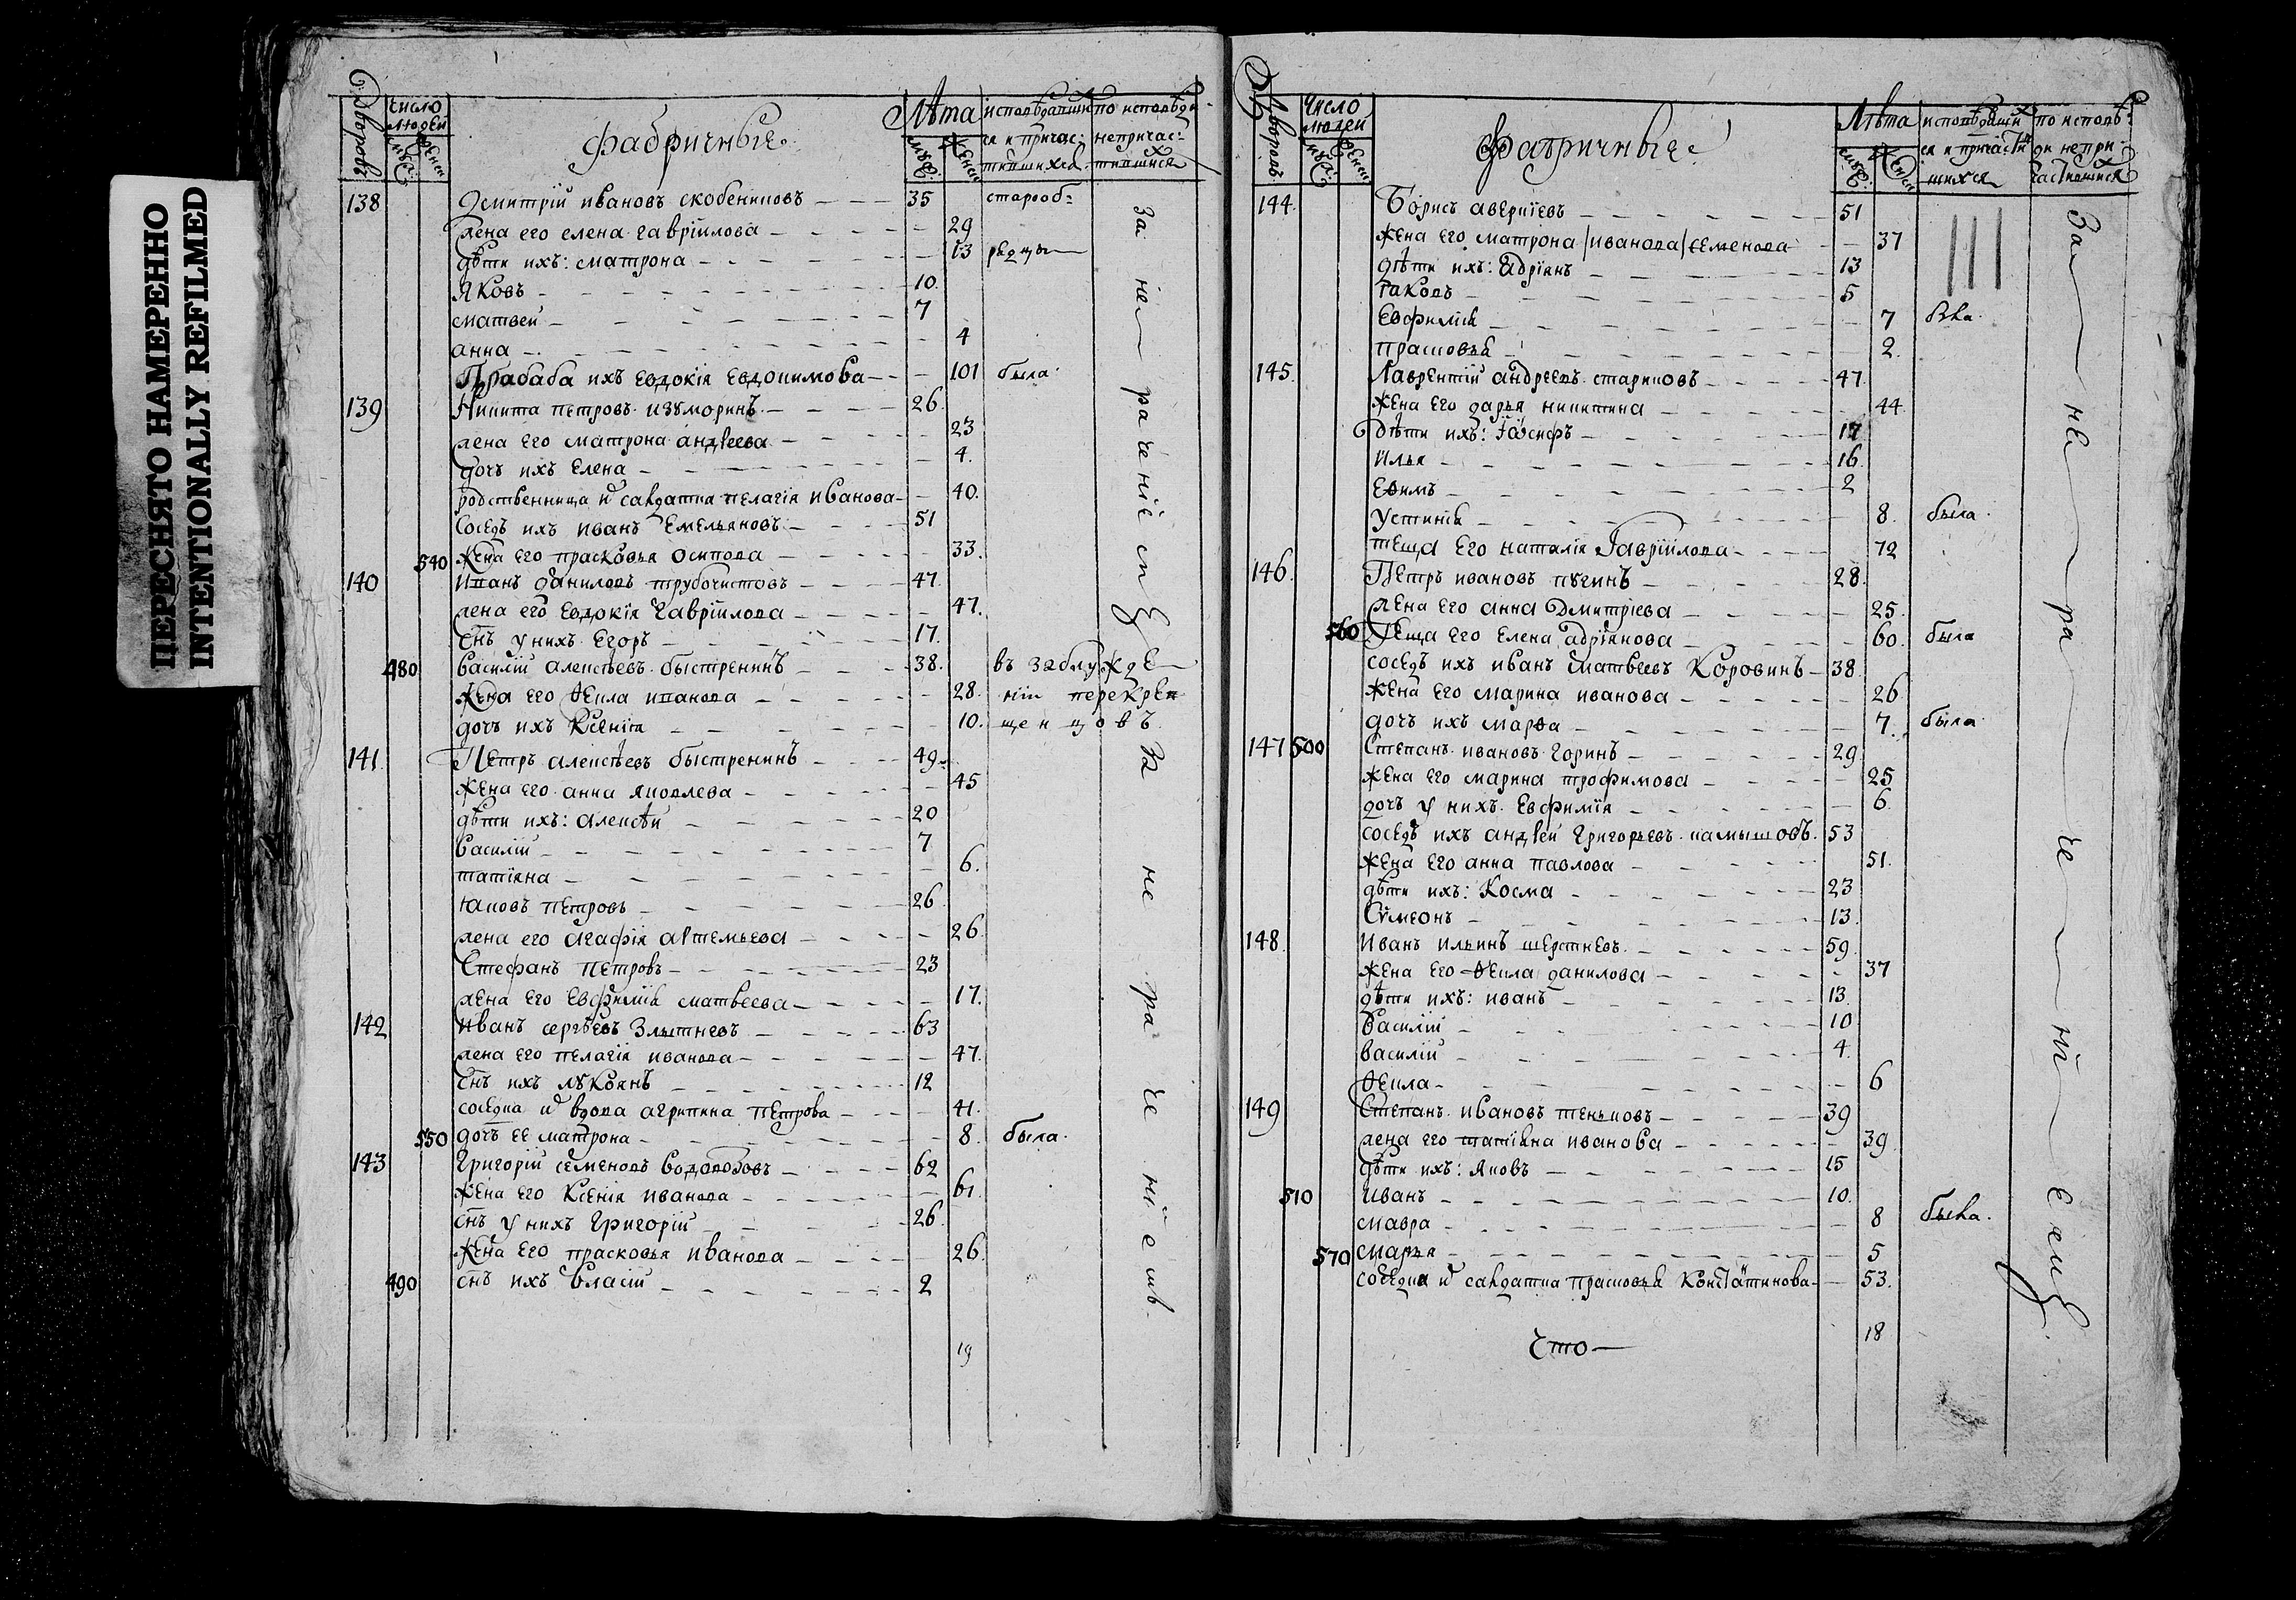 ПЕРЕСНЯТО НАМЕРЕННО
INTENTIONALLY REFILMED
Дворовъ
число людей
муж:
женс:
фабричные
Лѣта
муж:
женс:
исповѣдавшихся и причастившихся
по исповѣди непричастившихся
138 Дмитрій ивановъ скобениковъ 35 старооб=
жена его елена гавріилова 29
дѣти ихъ: матрона 13 рядцы
Яковъ 10.
матвей 7
анна 4
Прабаба ихъ евдокія евдокимова 101 была
139 Никита петровъ изуморинъ 26
жена его матрона андреева 23
дочь ихъ елена 4.
родственница и салдатка пелагія иванова 40.
соседъ ихъ иванъ емельяновъ 51
540 жена его прасковья осипова 33.
140 иванъ даниловъ трубочистовъ 47
жена его евдокія гавріилова 47.
снъ у нихъ егоръ 17.
480 василій алексѣевъ быстренинъ 38. въ заблужде
жена его ѳекла иванова 28. ніи перекре
дочь ихъ ксенія 10. щенцовъ
141 Петръ алексѣевъ быстренинъ 49
жена его анна яковлева 45
дѣти ихъ: алексѣй 20
василій 7
татіяна 6.
іаковъ петровъ 26
жена его агафія артемьева 26.
Стефанъ петровъ 23
жена его евфимія матвеева 17.
142 иванъ сергѣевъ 63
жена его пелагія иванова 47.
снъ ихъ лукоянъ 12
соседка и вдова агрипина петрова 41.
550 дочь ее матрона 8. была.
143 григорій семеновъ водопоовъ 62
жена его ксенія иванова 61.
снъ у нихъ григорій 26
жена его прасковья иванова 26.
490 снъ ихъ власій 2
19
за нераченіемъ
за нераченіемъ
Дворовъ
Число людей
муж:
женс:
Фабричные
Лѣта
муж:
женс:
исповѣдавшихся и причастившихся
по исповѣди непричастившихся
144. Борисъ аверкіевъ 51
жена его матрона /иванова/ семенова 37
дѣти ихъ: адріянъ 13
іаковъ 5
евфимія 7 была
прасковья 2.
145. Лаврентій андреевъ стариковъ 47
жена его дарья никитина 44
дѣти ихъ: іосифъ 17
илья 16.
ефимъ 2
устинья 8. была.
теща его наталія гавріилова 72
146. Петръ ивановъ пугинъ 28.
жена его анна дмитріева 25.
560 теща его елена адріянова 60. была
соседъ ихъ иванъ матвеевъ коровинъ 38.
жена его марина иванова 26
дочь ихъ марѳа 7. была
147 500 Степанъ ивановъ горинъ 29
жена его марина трофимова 25
дочь у нихъ евфимія 6.
соседъ ихъ андрей григорьевъ камышовъ 53
жена его анна павлова 51.
дѣти ихъ: косма 23
Сѵмеонъ 13.
148. иванъ ильинъ шерстневъ 59
жена его ѳекла данилова 37
дѣти ихъ: иванъ 13.
василій 10
василій 4.
ѳекла 6
149 Степанъ ивановъ теньковъ 39
жена его татіяна иванова 39
дѣти ихъ: яковъ 15
510 иванъ 10.
мавра 8 была.
570 марья 5
соседка и салдатка прасковья константинова 53.
18
за нераченіемъ